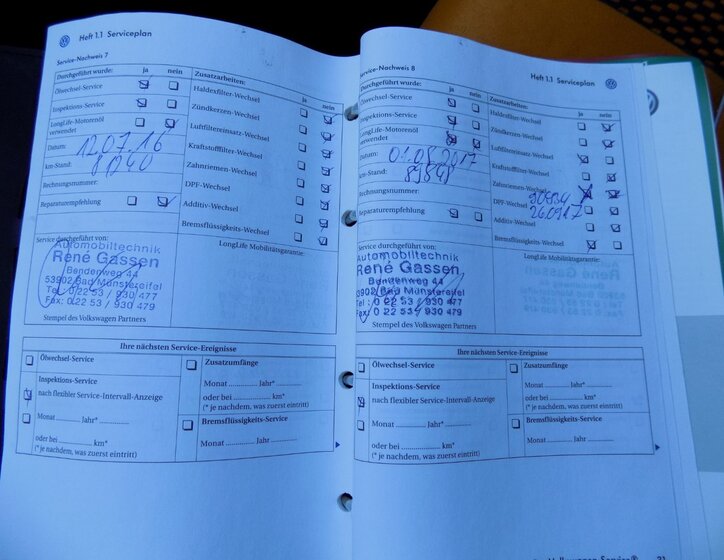 Heft 1.1 Serviceplan
Service-Nachweis 7
Durchgeführt wurde: ja nein
Ölwechsel-Service
Inspektions-Service
LongLife-Motorenöl
verwendet
Datum: 12.07.16
km-Stand:
Rechnungsnummer:
Reparaturempfehlung
Zusatzarbeiten:
ja nein
Haldexfilter-Wechsel
Zündkerzen-Wechsel
Luftfiltereinsatz-Wechsel
Kraftstofffilter-Wechsel
Zahnriemen-Wechsel
DPF-Wechsel
Additiv-Wechsel
Bremsflüssigkeits-Wechsel
Service durchgeführt von:
Automobiltechnik
René Gassen
Bendenweg 44
53902 Bad Münstereifel
Tel.: 0 22 53 / 930 477
Fax: 0 22 53 / 930 479
Stempel des Volkswagen Partners
LongLife Mobilitätsgarantie:
Ihre nächsten Service-Ereignisse
Ölwechsel-Service
Inspektions-Service
nach flexibler Service-Intervall-Anzeige
Monat Jahr*
oder bei km*
(* je nachdem, was zuerst eintritt)
Zusatzumfänge
Monat Jahr*
oder bei km*
(* je nachdem, was zuerst eintritt)
Bremsflüssigkeits-Service
Monat Jahr
Heft 1.1 Serviceplan
Service-Nachweis 8
Durchgeführt wurde: ja nein
Ölwechsel-Service
Inspektions-Service
LongLife-Motorenöl
verwendet
Datum: 01.08.2017
km-Stand: 89848
Rechnungsnummer:
Reparaturempfehlung
Zusatzarbeiten:
ja nein
Haldexfilter-Wechsel
Zündkerzen-Wechsel
Luftfiltereinsatz-Wechsel
Kraftstofffilter-Wechsel
Zahnriemen-Wechsel
DPF-Wechsel
Additiv-Wechsel
Bremsflüssigkeits-Wechsel
Service durchgeführt von:
Automobiltechnik
René Gassen
Bendenweg 44
53902 Bad Münstereifel
Tel.: 0 22 53 / 930 477
Fax: 0 22 53 / 930 479
Stempel des Volkswagen Partners
LongLife Mobilitätsgarantie:
Ihre nächsten Service-Ereignisse
Ölwechsel-Service
Inspektions-Service
nach flexibler Service-Intervall-Anzeige
Monat Jahr*
oder bei km*
(* je nachdem, was zuerst eintritt)
Zusatzumfänge
Monat Jahr*
oder bei km*
(* je nachdem, was zuerst eintritt)
Bremsflüssigkeits-Service
Monat Jahr